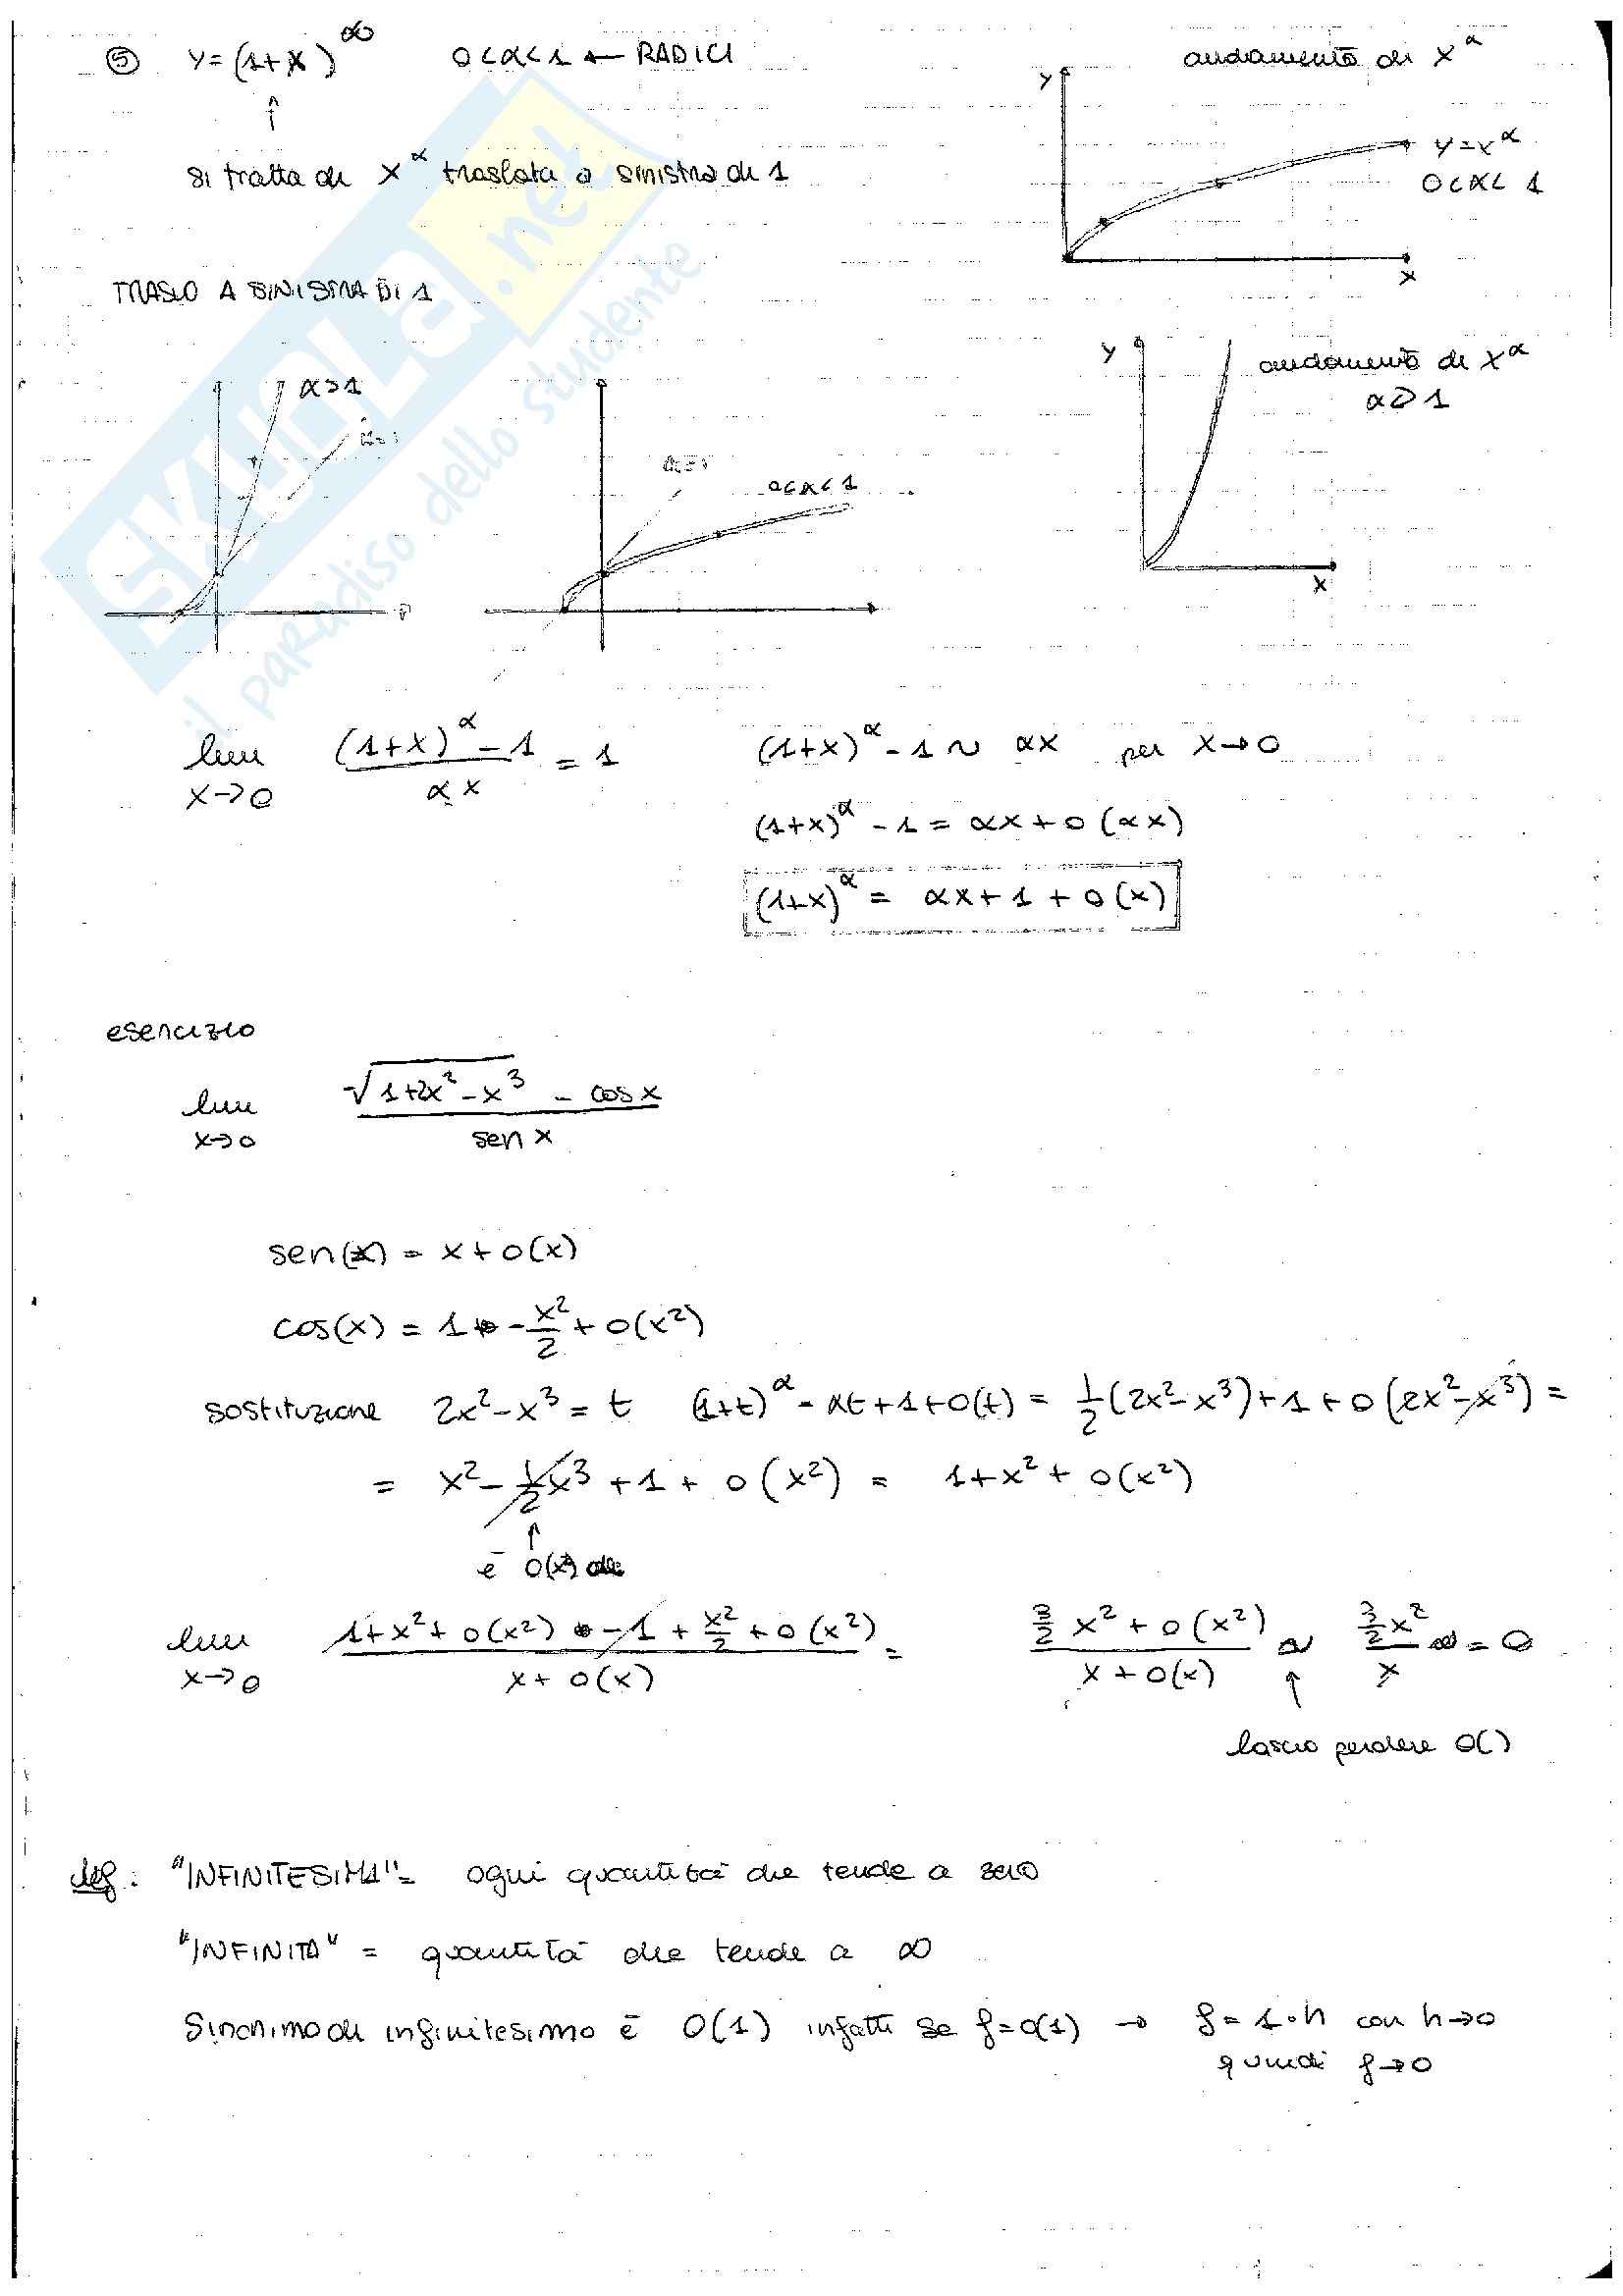 ⑤ y=(1+x)^α 0<α<1 ← RADICI
andamento di x^α
y
y=x^α
0<α<1
x
si tratta di x^α traslata a sinistra di 1
TRASLO A SINISTRA DI 1
α>1
0<α<1
y
andamento di x^α
α>1
x
lim x→0 ((1+x)^α - 1)/(αx) = 1
(1+x)^α - 1 ~ αx per x→0
(1+x)^α - 1 = αx + o(αx)
(1+x)^α = αx + 1 + o(x)
esercizio
lim x→0 (√(1+2x²-x³) - cosx)/(sen x)
sen(x) = x + o(x)
cos(x) = 1 - x²/2 + o(x²)
sostituzione 2x²-x³ = t (1+t)^α = αt+1+o(t) = 1/2(2x²-x³)+1+o(2x²-x³) =
= x² - 1/2x³ + 1 + o(x²) = 1+x²+o(x²)
↑
è o(x²)
lim x→0 (1+x²+o(x²) - 1 + x²/2 + o(x²))/(x+o(x)) = (3/2 x² + o(x²))/(x+o(x)) ~ (3/2 x²)/x = 0
↑
lascio perdere o()
def: "INFINITESIMA" = ogni quantità che tende a zero
"INFINITA" = quantità che tende a ∞
Sinonimo di infinitesimo è o(1) infatti se f=o(1) → f=1·h con h→0
quindi f→0
SKUOLA.net
il paradiso dello studente